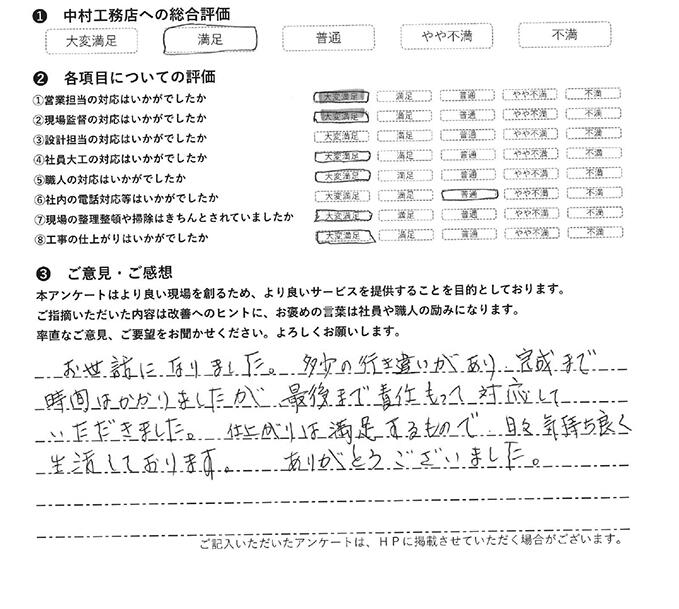 ❶ 中村工務店への総合評価
大変満足 満足 普通 やや不満 不満
❷ 各項目についての評価
①営業担当の対応はいかがでしたか 大変満足 満足 普通 やや不満 不満
②現場監督の対応はいかがでしたか 大変満足 満足 普通 やや不満 不満
③設計担当の対応はいかがでしたか 大変満足 満足 普通 やや不満 不満
④社員大工の対応はいかがでしたか 大変満足 満足 普通 やや不満 不満
⑤職人の対応はいかがでしたか 大変満足 満足 普通 やや不満 不満
⑥社内の電話対応等はいかがでしたか 大変満足 満足 普通 やや不満 不満
⑦現場の整理整頓や掃除はきちんとされていましたか 大変満足 満足 普通 やや不満 不満
⑧工事の仕上がりはいかがでしたか 大変満足 満足 普通 やや不満 不満
❸ ご意見・ご感想
本アンケートはより良い現場を創るため、より良いサービスを提供することを目的としております。
ご指摘いただいた内容は改善へのヒントに、お褒めの言葉は社員や職人の励みになります。
率直なご意見、ご要望をお聞かせください。よろしくお願いします。
お世話になりました。多少の行き違いがあり、完成まで
時間はかかりましたが 最後まで責任もって対応して
いただきました。仕上がりは満足するもので、日々気持ち良く
生活しております。 ありがとうございました。
ご記入いただいたアンケートは、HPに掲載させていただく場合がございます。